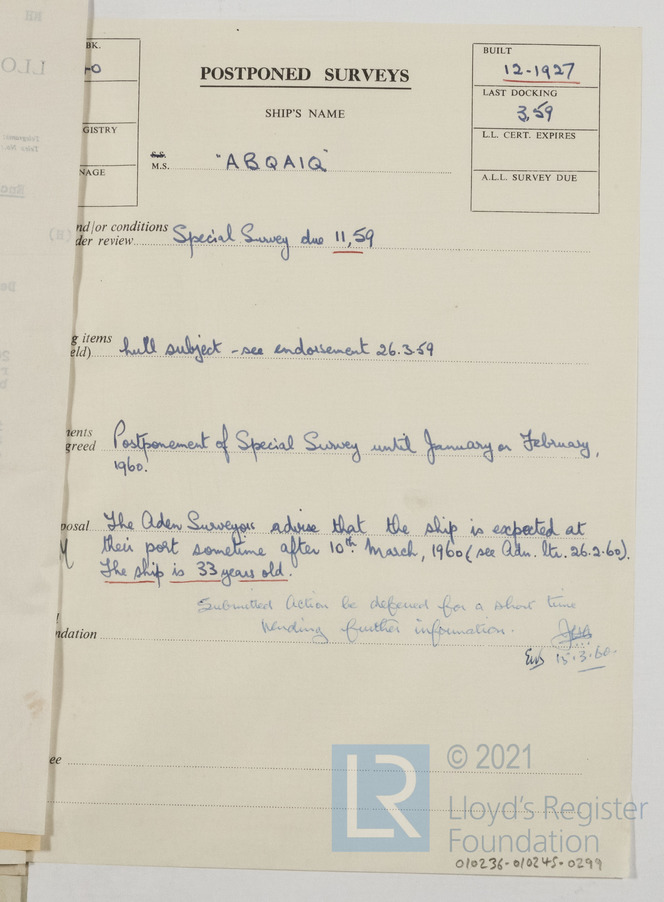 BK.
BUILT
12-1927
POSTPONED SURVEYS
LAST DOCKING
3,59
SHIP'S NAME
GISTRY
L.L. CERT. EXPIRES
S.S.
M.S. "ABQAIQ"
NAGE
A.L.L. SURVEY DUE
nd/or conditions
der review Special Survey due 11,59
g items
eld) hull subject - see endorsement 26.3.59
ents
greed Postponement of Special Survey until January or February,
1960.
posal The Aden Surveyors advise that the ship is expected at
their port sometime after 10th March, 1960 (see Adn. ltr. 26.2.60).
The ship is 33 years old.
Submitted Action be deferred for a short time
ndation pending further information.
15.3.60.
ee
© 2021
LR
Lloyd's Register
Foundation
010236-010245-0299